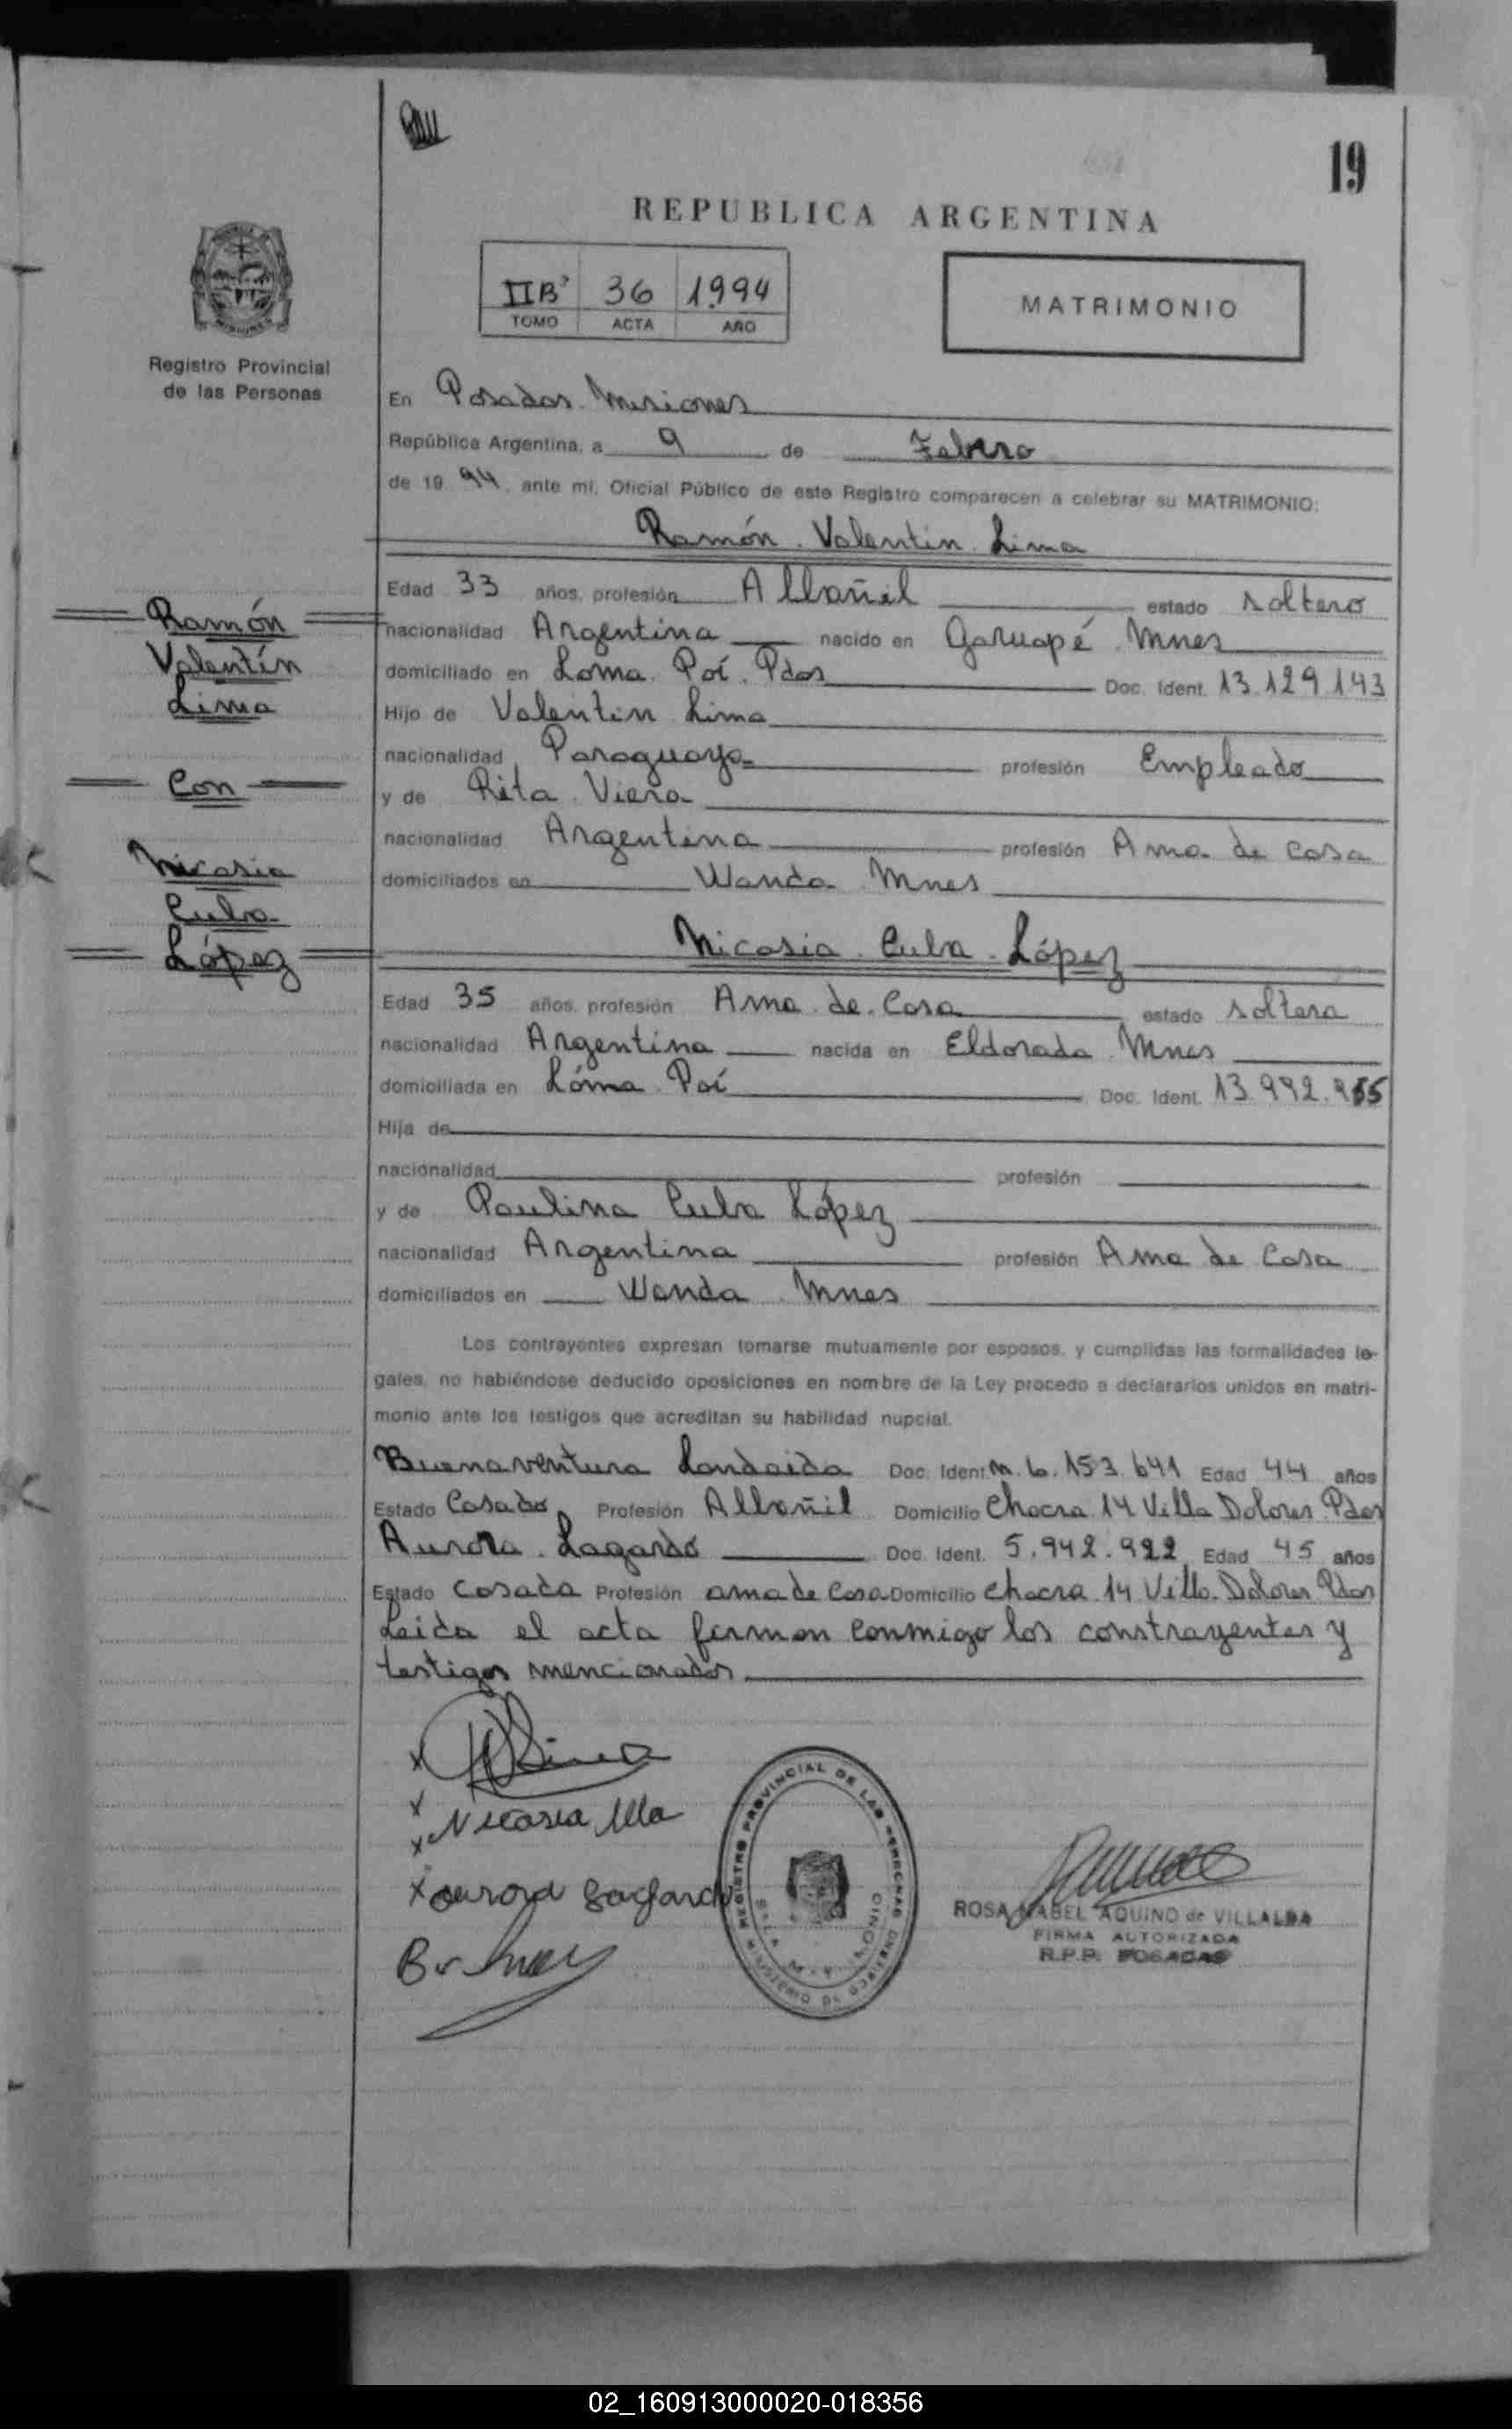 19
REPUBLICA ARGENTINA
IIB° 36 1994
TOMO ACTA AÑO
MATRIMONIO
Registro Provincial
de las Personas
En Posadas Misiones
República Argentina, a 9 de Febrero
de 19 94, ante mí, Oficial Público de este Registro comparecen a celebrar su MATRIMONIO:
Ramón Valentin Lima
Edad 33 años, profesión Albañil estado soltero
nacionalidad Argentina nacido en Garuapé Mnes
domiciliado en Loma Poí. Pdas Doc. Ident. 13.129.143
Hijo de Valentin Lima
nacionalidad Paraguaya profesión Empleado
y de Rita Viera
nacionalidad Argentina profesión Ama de Casa
domiciliados en Wanda Mnes
Ramón
Valentín
Lima
Con
Nicasia
Culra
López
Nicasia Culra López
Edad 35 años, profesión Ama de Casa estado soltera
nacionalidad Argentina nacida en Eldorado Mnes
domiciliada en Lóma Poí Doc. Ident. 13.992.
Hija de
nacionalidad profesión
y de Paulina Culra López
nacionalidad Argentina profesión Ama de Casa
domiciliados en Wanda Mnes
Los contrayentes expresan tomarse mutuamente por esposos, y cumplidas las formalidades le-
gales, no habiéndose deducido oposiciones en nombre de la Ley procedo a declararlos unidos en matri-
monio ante los testigos que acreditan su habilidad nupcial.
Buenaventura Landaida Doc. Ident. M. 6.153.641 Edad 44 años
Estado Casado Profesión Albañil Domicilio Chacra 14 Villa Dolores Pdas
Aurora Lagardo Doc. Ident. 5.942.922 Edad 45 años
Estado Casada Profesión ama de Casa Domicilio Chacra 14 Villa Dolores Pdas
Leida el acta firman conmigo los constrayentes y
testigos mencionados
x
x Nicasia
x aurora
REGISTRO PROVINCIAL DE LAS PERSONAS
MINISTERIO DE GOBIERNO
ROSA MABEL AQUINO de VILLALBA
FIRMA AUTORIZADA
R.P.P. POSADAS
02_160913000020-018356